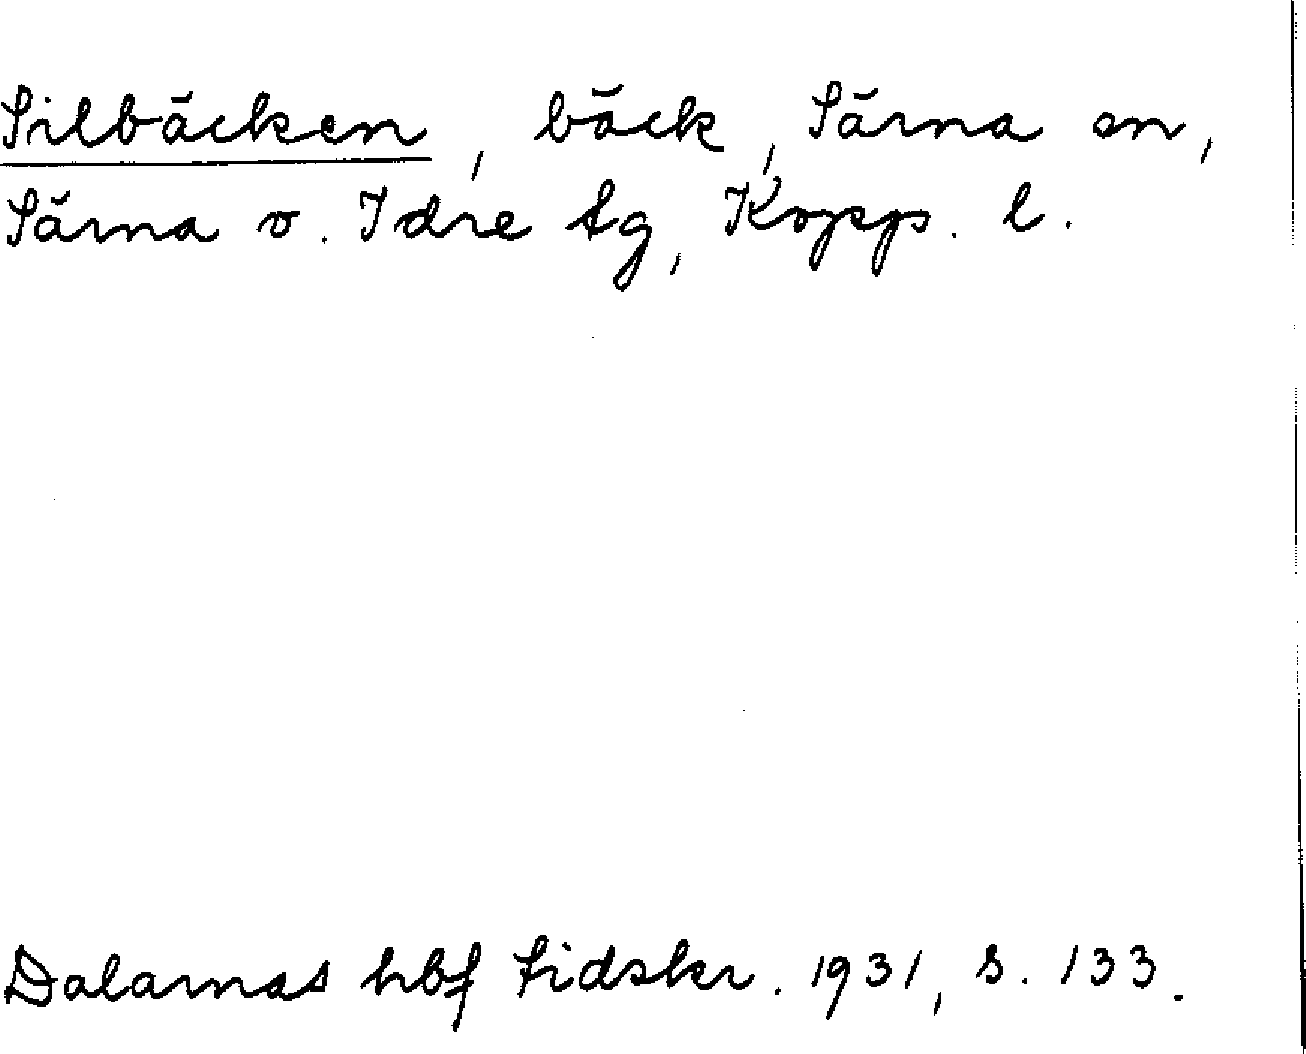 Silbäcken, bäck, Särna sn,
Särna o. Idre tg, Kopp. l.
Dalarnas hbf tidskr. 1931, s. 133.